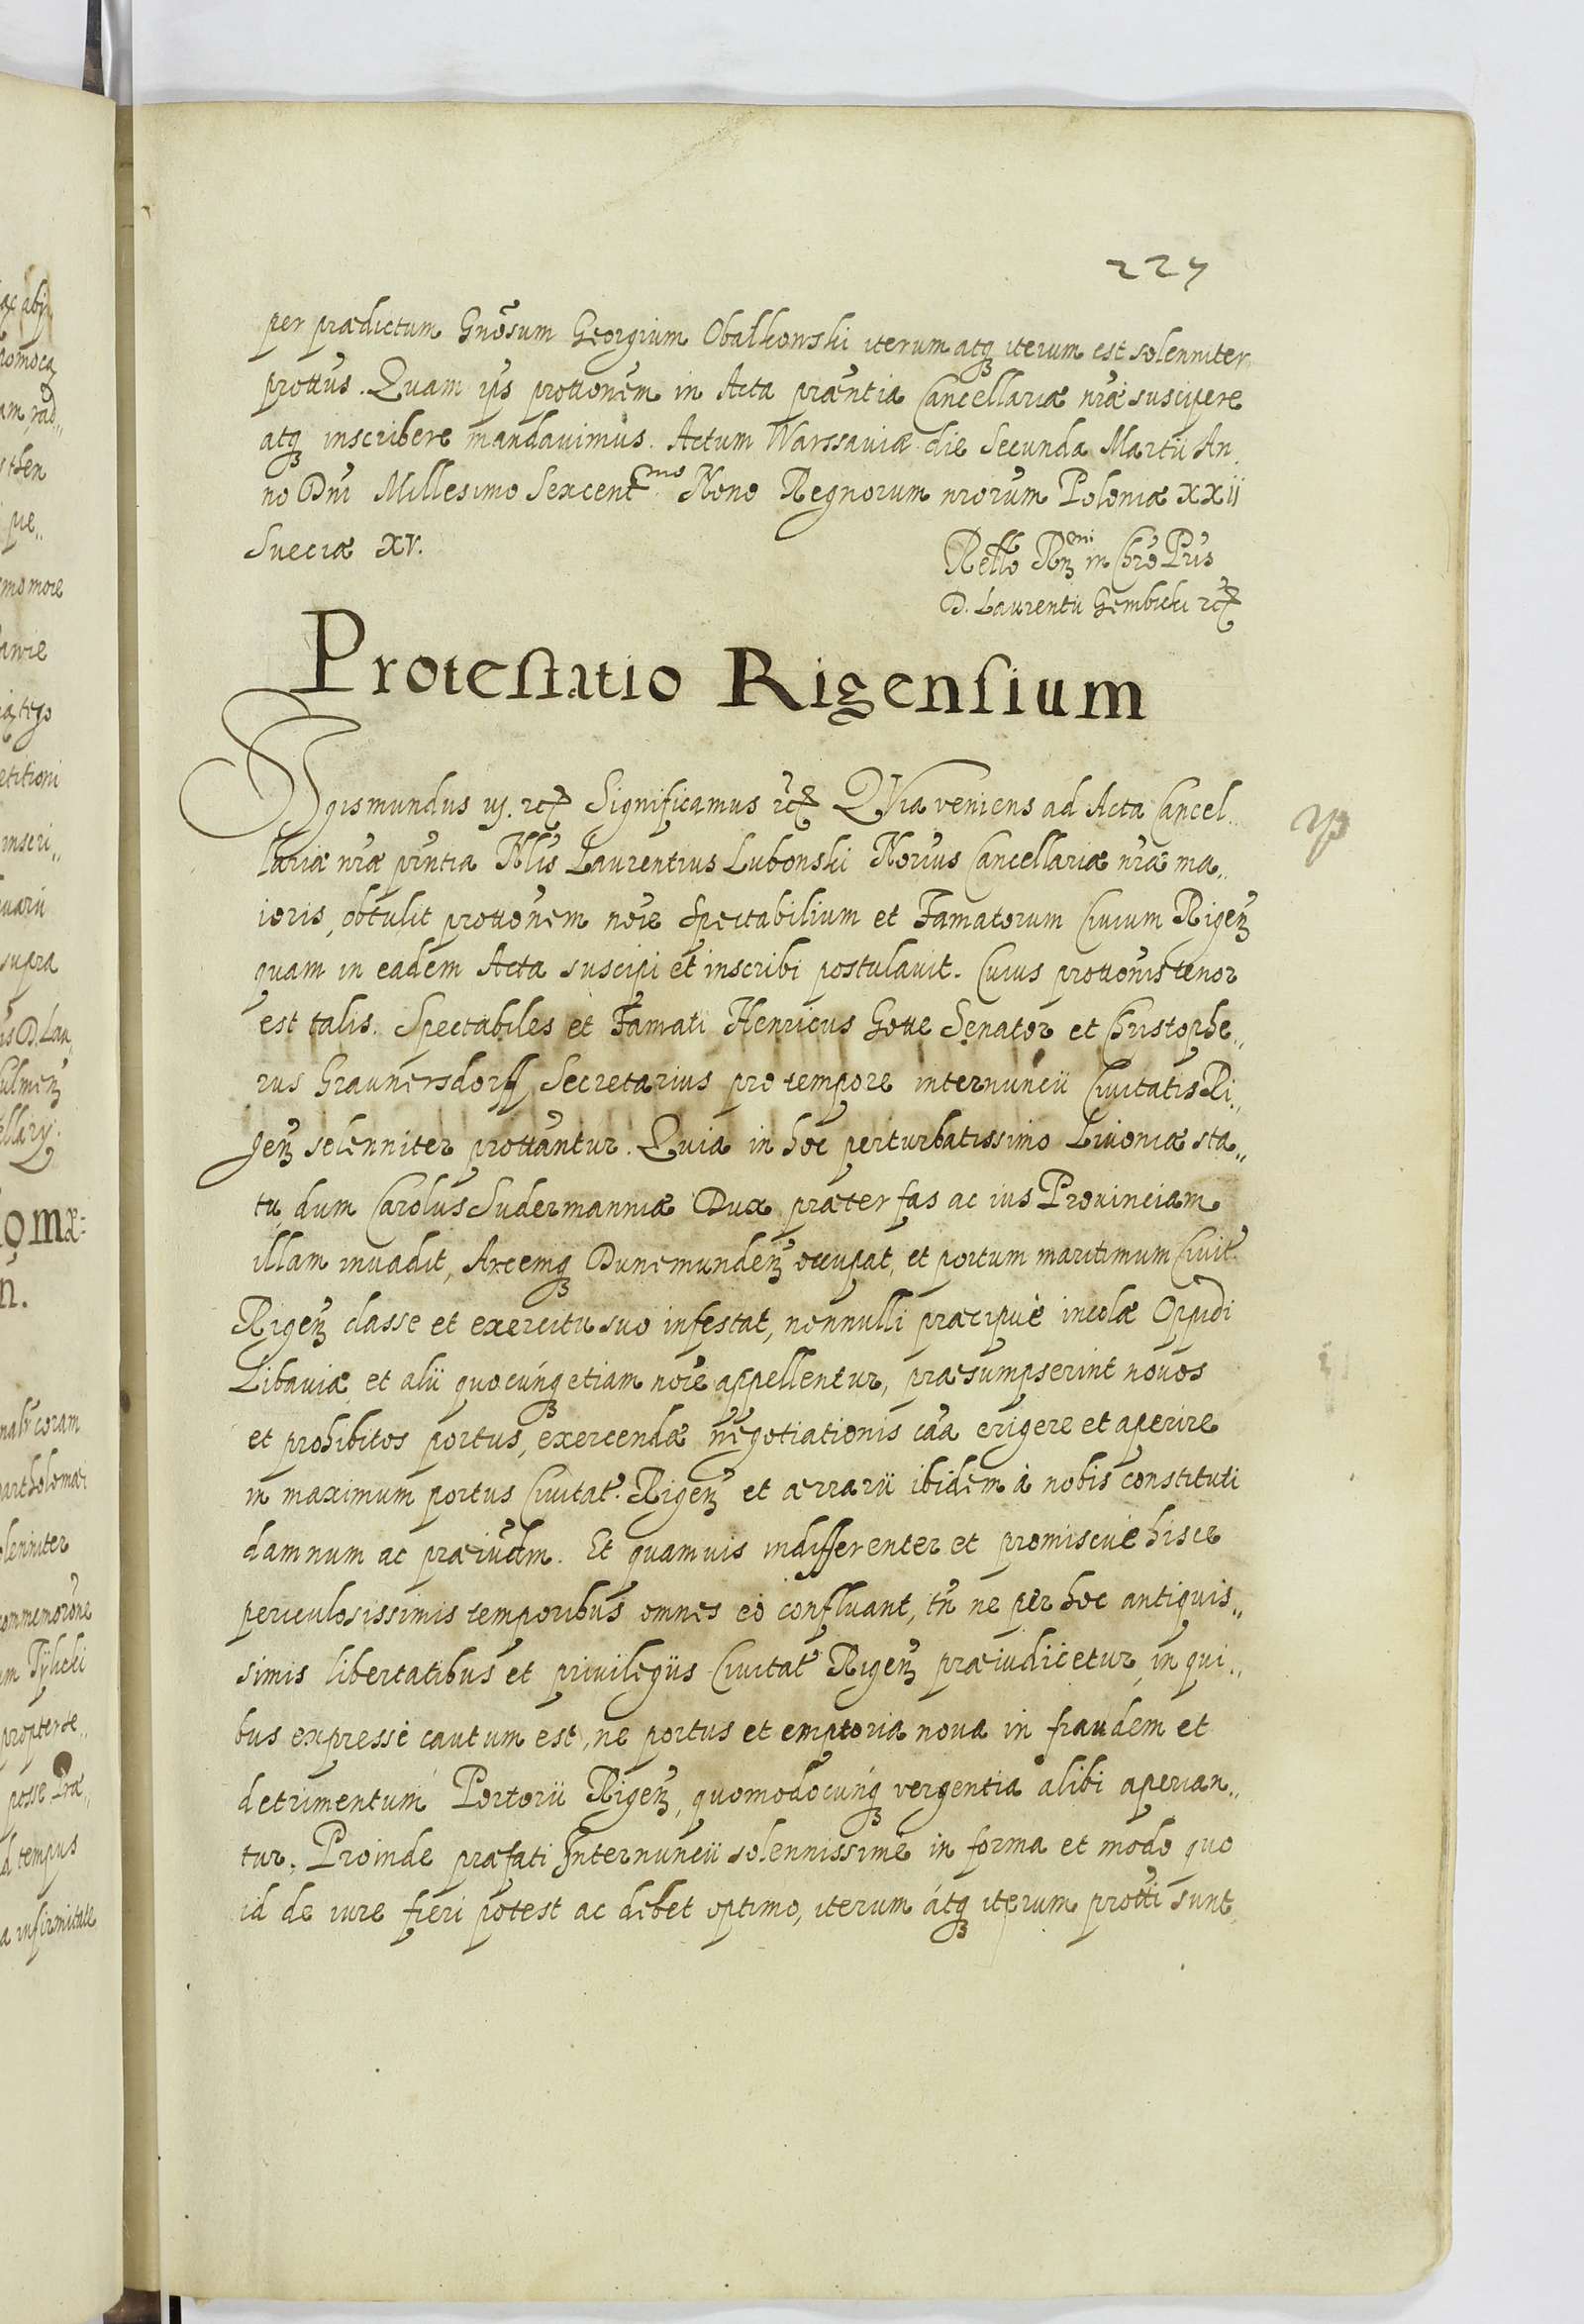 227
per prædictum Gnõsum Georgium Obałkowski iterum atqꝫ iterum est solenniter
prottus. Quam ips prottonem in Acta præntia Cancellariæ nræ suscipere
atqꝫ inscribere mandavimus. Actum Warssaviæ die Secunda Martii An.
no Dni Millesimo Sexcentmo Nono Regnorum nrorum Poloniæ XXII
Sveciæ XV.
Rello Rmi in Chro Pris
D. Laurentii Gembicki rcꝫ
Protestatio Rigensium
Sigismundus iij. rcꝫ Significamus rcꝫ QVia veniens ad Acta Cancel..
lariæ nræ prntia Nlis Laurentius Lubonski Norius Cancellariæ nræ ma..
ioris, obtulit prottonem noie Spectabilium et Famatorum Civium Rigenꝫ
quam in eadem Acta suscipi et inscribi postulavit. Cuius prottonis tenor
est talis. Spectabiles et Famati Henricus Gotte Senator et Christophe..
rus Graunersdorff Secretarius pro tempore internuncii Civitatis Ri..
genꝫ solenniter prottantur. Quia in hoc perturbatissimo Livoniæ sta..
tu, dum Carolus Sudermanniæ Dux præter fas ac ius Provinciam
illam invadit, Arcemqꝫ Dunemundenꝫ occupat, et portum maritimum Civit.
Rigenꝫ classe et exercitu suo infestat, nonnulli præcipuè incolæ Oppidi
Libaviæ et alii quocunqꝫ etiam noie appellentur, præsumpserint novos
et prohibitos portus, exercendæ negotiationis caa erigere et aperire
in maximum portus Civitat. Rigenꝫ et ærrarii ibidem à nobis constituti
damnum ac præiudm. Et quamvis indifferenter et promiscuè hisce
periculosissimis temporibus omnes eò confluant, tn ne per hoc antiquis..
simis libertatibus et privilegiis Civitat Rigenꝫ præiudicetur, in qui..
bus expressè cautum est, ne portus et emptoria nova in fraudem et
detrimentum Portorii Rigenꝫ, quomodocunqꝫ vergentia alibi aperian..
tur. Proinde præfati Internuncii solennissimè in forma et modo quo
id de iure fieri potest ac debet optimo, iterum atqꝫ iterum protti sunt